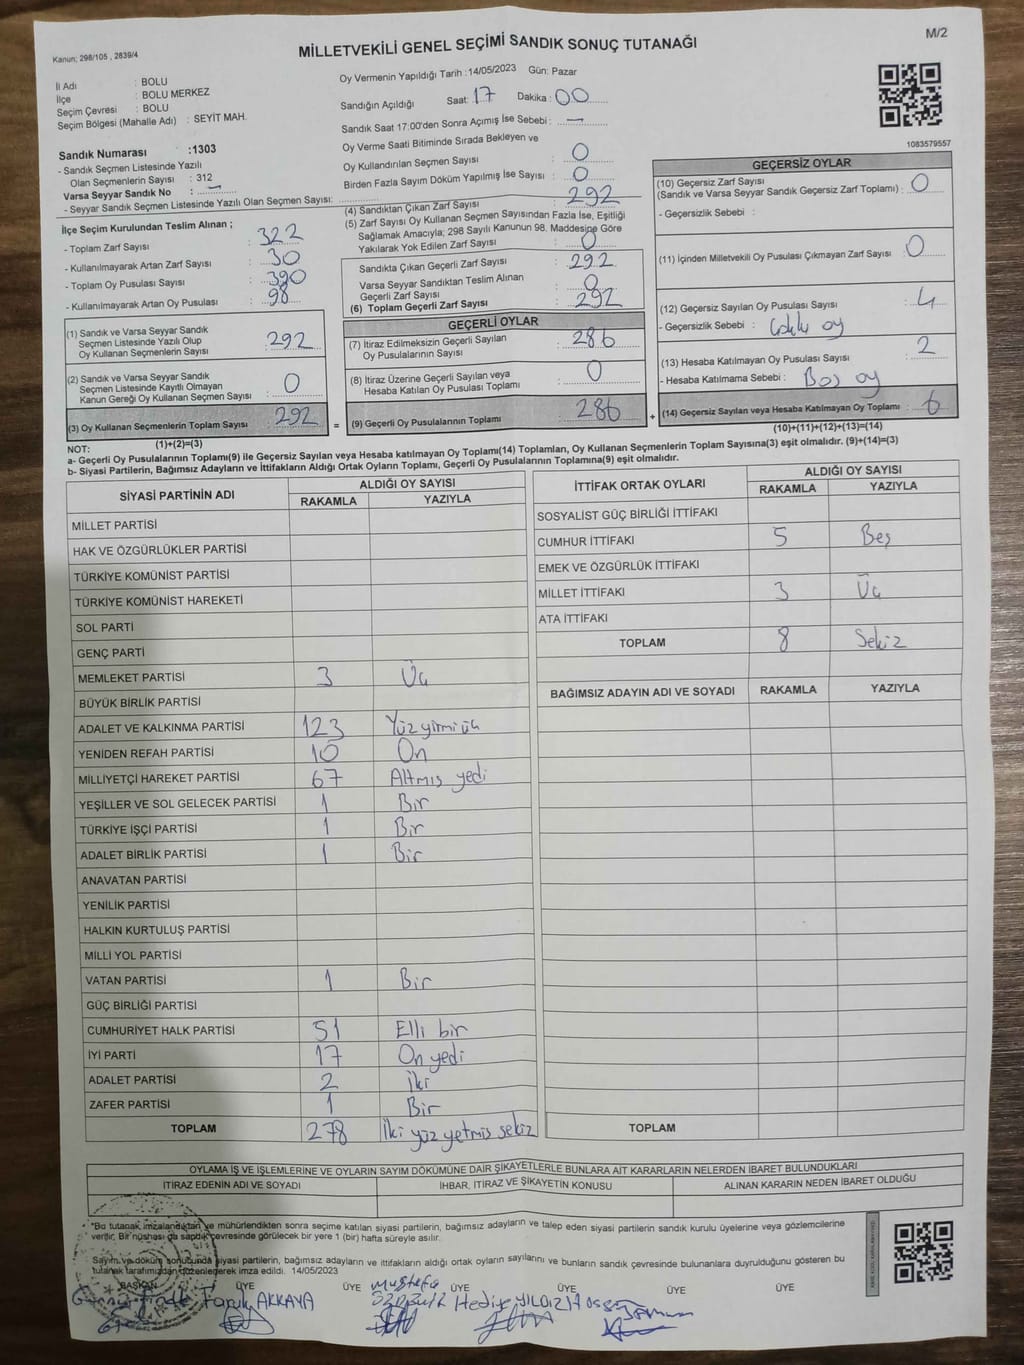 Kanun; 298/105 , 2839/4
MİLLETVEKİLİ GENEL SEÇİMİ SANDIK SONUÇ TUTANAĞI
M/2
İl Adı : BOLU
İlçe : BOLU MERKEZ
Seçim Çevresi : BOLU
Seçim Bölgesi (Mahalle Adı) : SEYİT MAH.
Oy Vermenin Yapıldığı Tarih :14/05/2023 Gün: Pazar
Sandığın Açıldığı Saat: 17 Dakika : 00
Sandık Saat 17:00'den Sonra Açımış İse Sebebi : —
Oy Verme Saati Bitiminde Sırada Bekleyen ve
Oy Kullandırılan Seçmen Sayısı : 0
Birden Fazla Sayım Döküm Yapılmış İse Sayısı : 0
1083579557
Sandık Numarası :1303
- Sandık Seçmen Listesinde Yazılı
Olan Seçmenlerin Sayısı : 312
Varsa Seyyar Sandık No : —
- Seyyar Sandık Seçmen Listesinde Yazılı Olan Seçmen Sayısı:
İlçe Seçim Kurulundan Teslim Alınan ;
- Toplam Zarf Sayısı : 322
- Kullanılmayarak Artan Zarf Sayısı : 30
- Toplam Oy Pusulası Sayısı : 390
- Kullanılmayarak Artan Oy Pusulası : 98
(1) Sandık ve Varsa Seyyar Sandık
Seçmen Listesinde Yazılı Olup
Oy Kullanan Seçmenlerin Sayısı : 292
(2) Sandık ve Varsa Seyyar Sandık
Seçmen Listesinde Kayıtlı Olmayan
Kanun Gereği Oy Kullanan Seçmen Sayısı : 0
(3) Oy Kullanan Seçmenlerin Toplam Sayısı : 292
(1)+(2)=(3)
(4) Sandıktan Çıkan Zarf Sayısı : 292
(5) Zarf Sayısı Oy Kullanan Seçmen Sayısından Fazla İse, Eşitliği
Sağlamak Amacıyla; 298 Sayılı Kanunun 98. Maddesine Göre
Yakılarak Yok Edilen Zarf Sayısı : 0
Sandıkta Çıkan Geçerli Zarf Sayısı : 292
Varsa Seyyar Sandıktan Teslim Alınan
Geçerli Zarf Sayısı : 0
(6) Toplam Geçerli Zarf Sayısı : 292
GEÇERLİ OYLAR
(7) İtiraz Edilmeksizin Geçerli Sayılan
Oy Pusulalarının Sayısı : 286
(8) İtiraz Üzerine Geçerli Sayılan veya
Hesaba Katılan Oy Pusulası Toplamı : 0
= (9) Geçerli Oy Pusulalarının Toplamı : 286 +
GEÇERSİZ OYLAR
(10) Geçersiz Zarf Sayısı
(Sandık ve Varsa Seyyar Sandık Geçersiz Zarf Toplamı) : 0
- Geçersizlik Sebebi :
(11) İçinden Milletvekili Oy Pusulası Çıkmayan Zarf Sayısı : 0
(12) Geçersiz Sayılan Oy Pusulası Sayısı : 4
- Geçersizlik Sebebi : oy
(13) Hesaba Katılmayan Oy Pusulası Sayısı : 2
- Hesaba Katılmama Sebebi : Boş oy
(14) Geçersiz Sayılan veya Hesaba Katılmayan Oy Toplamı : 6
(10)+(11)+(12)+(13)=(14)
NOT:
a- Geçerli Oy Pusulalarının Toplamı(9) ile Geçersiz Sayılan veya Hesaba katılmayan Oy Toplamı(14) Toplamları, Oy Kullanan Seçmenlerin Toplam Sayısına(3) eşit olmalıdır. (9)+(14)=(3)
b- Siyasi Partilerin, Bağımsız Adayların ve İttifakların Aldığı Ortak Oyların Toplamı, Geçerli Oy Pusulalarının Toplamına(9) eşit olmalıdır.
SİYASİ PARTİNİN ADI ALDIĞI OY SAYISI
RAKAMLA YAZIYLA
MİLLET PARTİSİ
HAK VE ÖZGÜRLÜKLER PARTİSİ
TÜRKİYE KOMÜNİST PARTİSİ
TÜRKİYE KOMÜNİST HAREKETİ
SOL PARTİ
GENÇ PARTİ
MEMLEKET PARTİSİ 3 Üç
BÜYÜK BİRLİK PARTİSİ
ADALET VE KALKINMA PARTİSİ 123 Yüz yirmi üç
YENİDEN REFAH PARTİSİ 10 On
MİLLİYETÇİ HAREKET PARTİSİ 67 Altmış yedi
YEŞİLLER VE SOL GELECEK PARTİSİ 1 Bir
TÜRKİYE İŞÇİ PARTİSİ 1 Bir
ADALET BİRLİK PARTİSİ 1 Bir
ANAVATAN PARTİSİ
YENİLİK PARTİSİ
HALKIN KURTULUŞ PARTİSİ
MİLLİ YOL PARTİSİ
VATAN PARTİSİ 1 Bir
GÜÇ BİRLİĞİ PARTİSİ
CUMHURİYET HALK PARTİSİ 51 Elli bir
İYİ PARTİ 17 On yedi
ADALET PARTİSİ 2 İki
ZAFER PARTİSİ 1 Bir
TOPLAM 278 İki yüz yetmiş sekiz
İTTİFAK ORTAK OYLARI ALDIĞI OY SAYISI
RAKAMLA YAZIYLA
SOSYALİST GÜÇ BİRLİĞİ İTTİFAKI
CUMHUR İTTİFAKI 5 Beş
EMEK VE ÖZGÜRLÜK İTTİFAKI
MİLLET İTTİFAKI 3 Üç
ATA İTTİFAKI
TOPLAM 8 Sekiz
BAĞIMSIZ ADAYIN ADI VE SOYADI RAKAMLA YAZIYLA
TOPLAM
OYLAMA İŞ VE İŞLEMLERİNE VE OYLARIN SAYIM DÖKÜMÜNE DAİR ŞİKAYETLERLE BUNLARA AİT KARARLARIN NELERDEN İBARET BULUNDUKLARI
İTİRAZ EDENİN ADI VE SOYADI İHBAR, İTİRAZ VE ŞİKAYETİN KONUSU ALINAN KARARIN NEDEN İBARET OLDUĞU
"Bu tutanak imzalandıktan ve mühürlendikten sonra seçime katılan siyasi partilerin, bağımsız adayların ve talep eden siyasi partilerin sandık kurulu üyelerine veya gözlemcilerine
verilir. Bir nüshası da sandık çevresinde görülecek bir yere 1 (bir) hafta süreyle asılır.
Sayım ve döküm sonucunda siyasi partilerin, bağımsız adayların ve ittifakların aldığı ortak oyların sayılarını ve bunların sandık çevresinde duyurulduğunu gösteren bu
tutanak tarafımızdan düzenlenerek imza edildi. 14/05/2023
BAŞKAN ÜYE ÜYE ÜYE ÜYE ÜYE ÜYE
Faruk AKKAYA Mustafa Hediye YILDIZ